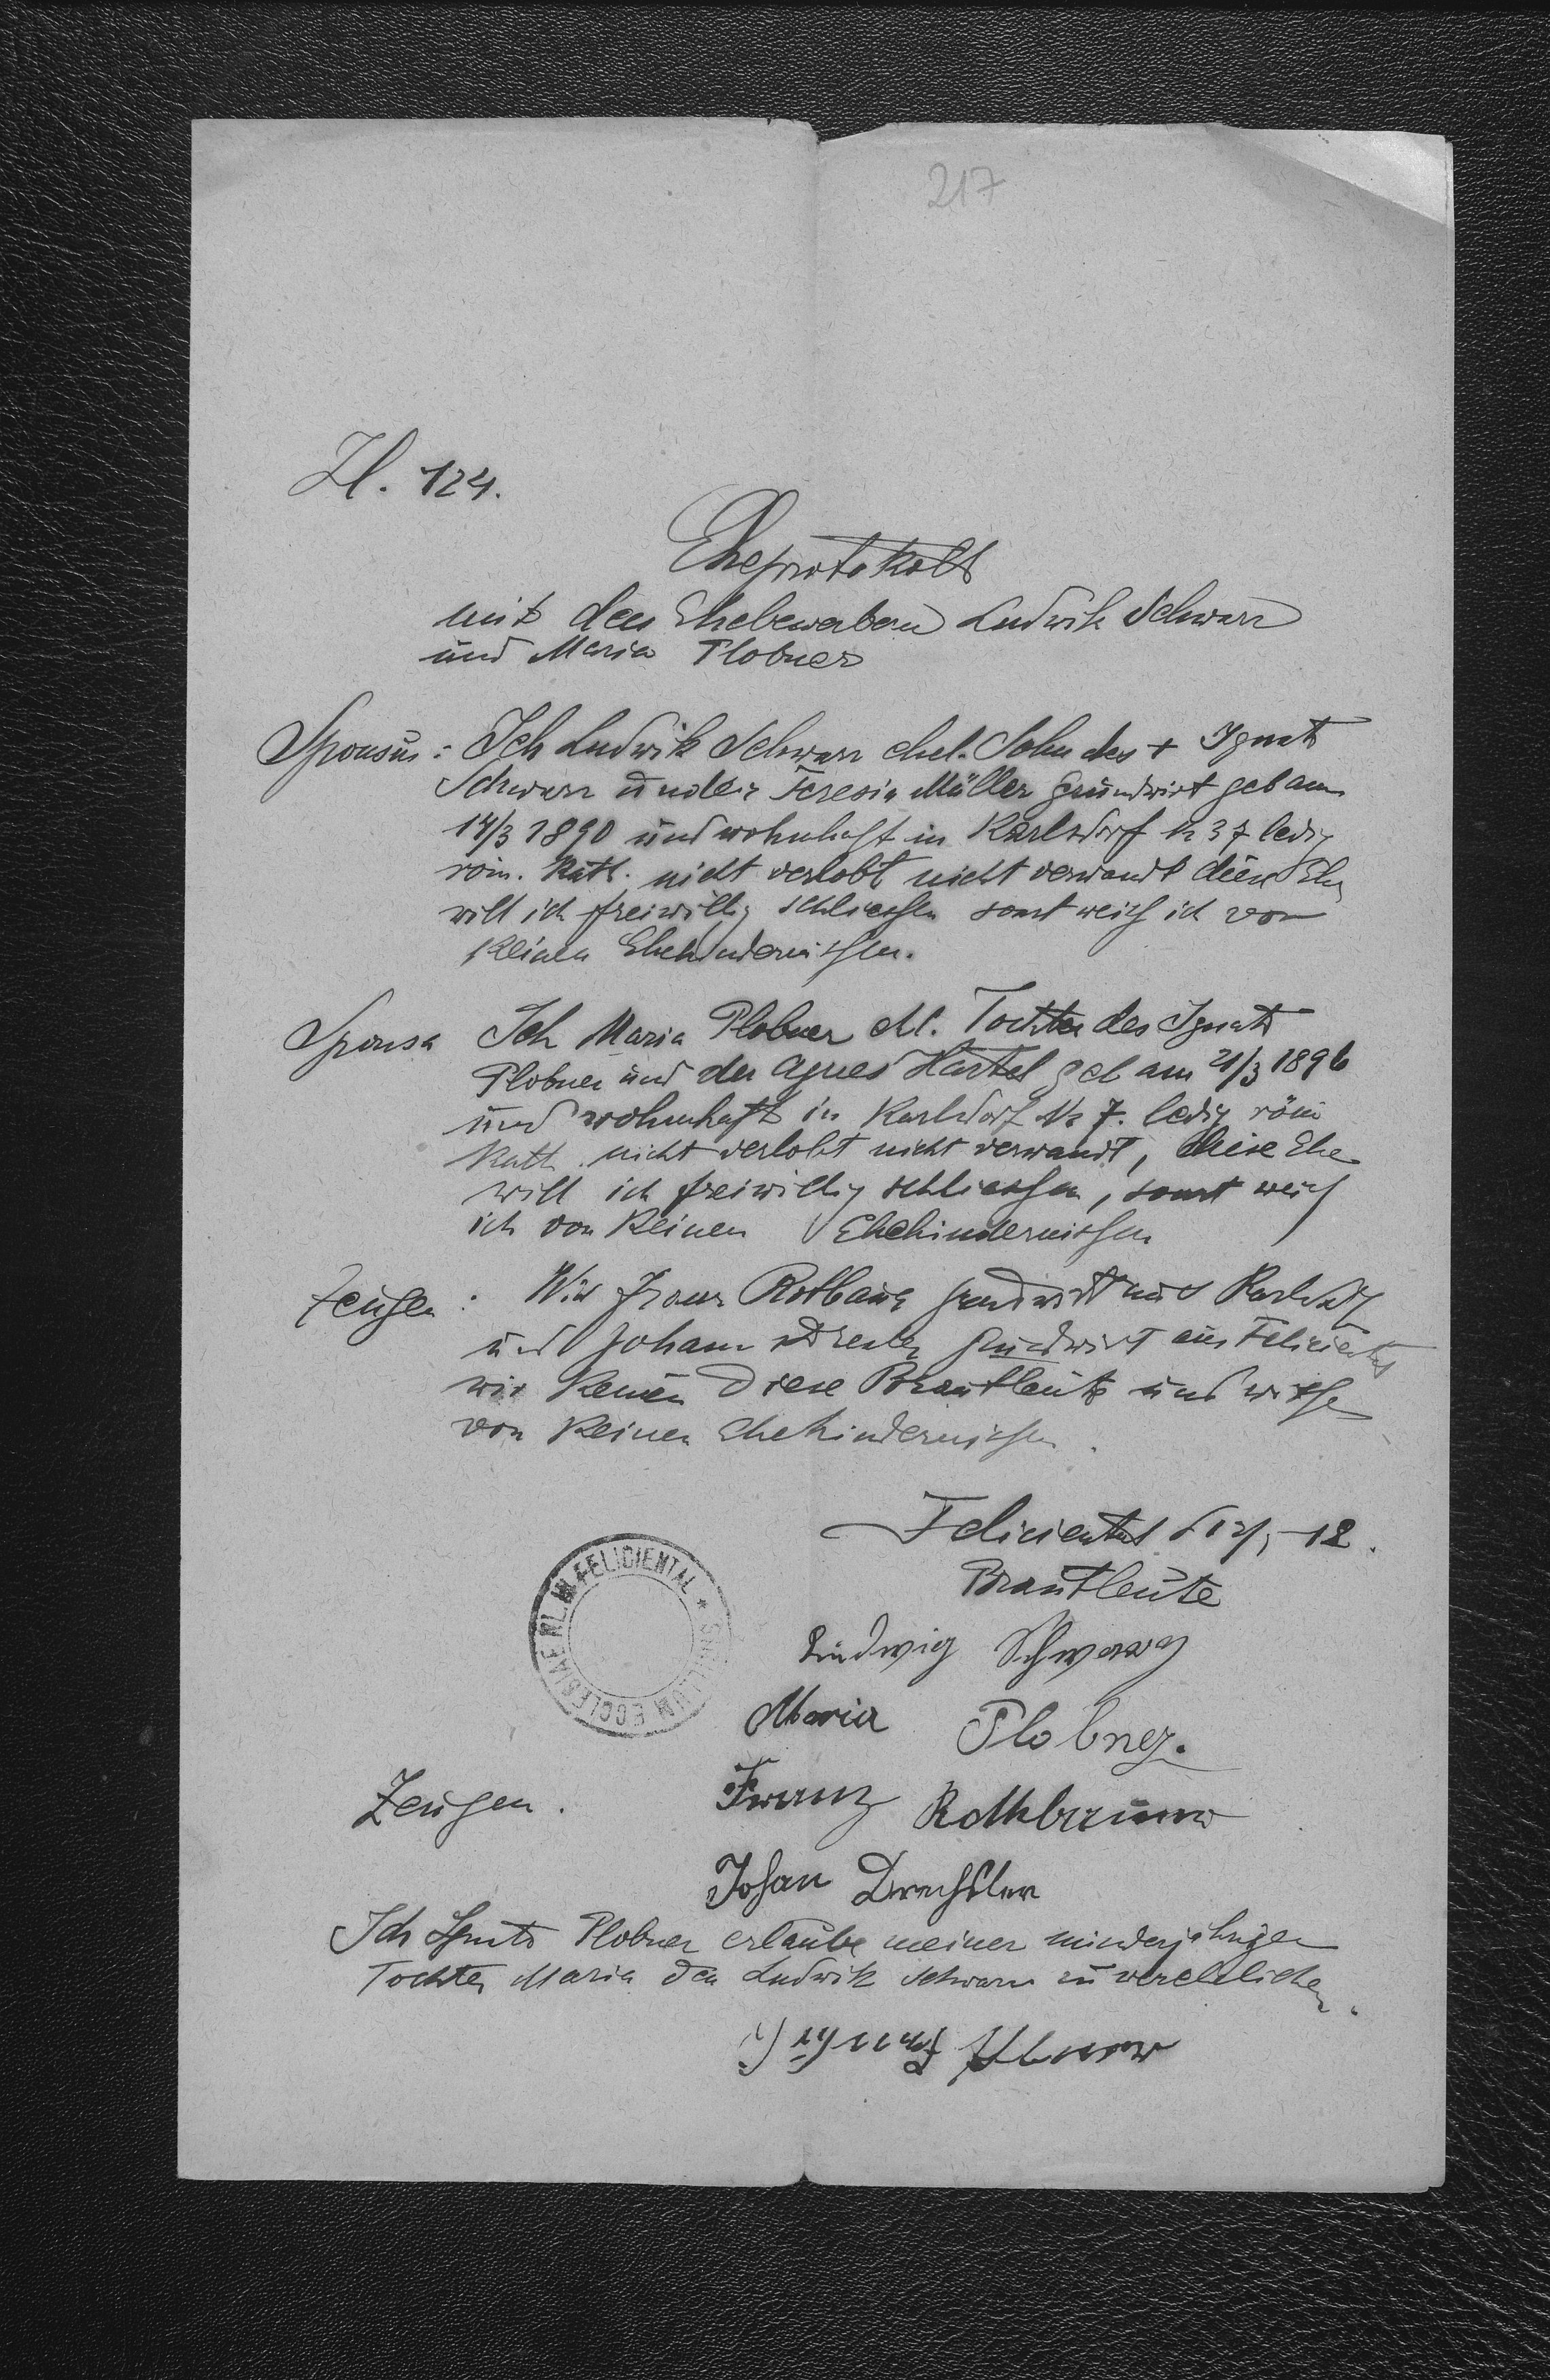 217
Zl. 124.
Eheprotokoll
mit den Ehebewerbern Ludwik Schwarz
und Maria Plobner
Sponsus: Ich Ludwik Schwarz ehel. Sohn des + Ignatz
Schwarz u nd der Teresia Müller Grundwirt geb am
14/3 1890 und wohnhaft in Karlsdorf N 37 ledig
röm. Kath. nicht verlobt nicht verwandt diese Ehe
will ich freiwillig schliessen sonst weiß ich von
keinen Ehehindernissen.
Sponsa Ich Maria Plobner ehl. Tochter des Ignatz
Plobner und der Agnes Hartel geb am 21/3 1896
und wohnhaft in Karlsdorf N 7. ledig röm
Kath. nicht verlobt nicht verwandt, diese Ehe
will ich freiwillig schliessen, sonst weiß
ich von keinen Ehehindernissen
Zeugen: Wir Franz Rotbaur Grundwirt aus Karlsdorf
und Johann Grundwirt aus Felicienthal
wir kennen diese Brautleute und wissen
von keinen Ehehindernissen.
Felicienthal -12.
Brautleute
SIGILLUM ECCLESIAE RL. IN FELICIENTAL *
Ludwig Schwarz
Maria Plobner.
Zeugen. Franz Rothbauer
Johan Drechsler
Ich Ignatz Plobner erlaube meiner minderjährigen
Tochter Maria den Ludwik Schwarz zu verehlichen.
Ignatz